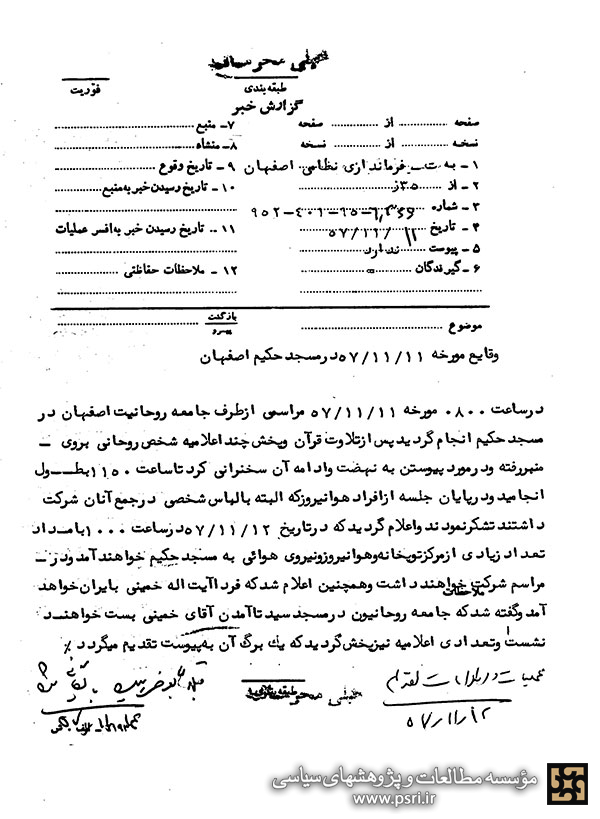 خیلی محرمانه
طبقه‌بندی
فوریت
گزارش خبر
صفحه از صفحه
نسخه از نسخه
۱ـ به ت فرمانداری نظامی اصفهان
۲ـ از ۳۵ز
۳ـ شماره
۴ـ تاریخ ۵۷/۱۱/۱۱
۵ـ پیوست ندارد
۶ـ گیرندگان
۷ـ منبع
۸ـ منشاء
۹ـ تاریخ وقوع
۱۰ـ تاریخ رسیدن خبر به منبع
۱۱ـ تاریخ رسیدن خبر به افسر عملیات
۱۲ـ ملاحظات حفاظتی
موضوع
بازگشت
پیرو
وقایع مورخه ۵۷/۱۱/۱۱ در مسجد حکیم اصفهان
در ساعت ۰۸۰۰ مورخه ۵۷/۱۱/۱۱ مراسمی از طرف جامعه روحانیت اصفهان در
مسجد حکیم انجام گردید پس از تلاوت قرآن و پخش چند اعلامیه شخص روحانی بروی ـ
منبر رفته و در مورد پیوستن به نهضت و ادامه آن سخنرانی کرد تا ساعت ۱۱۵۰ بطـــول
انجامید و در پایان جلسه از افراد هوانیروز که البته با لباس شخصی در جمع آنان شرکت
داشتند تشکر نمودند و اعلام گردید که در تاریخ ۵۷/۱۱/۱۲ در ساعت ۱۰۰۰ بامداد
تعداد زیادی از مرکز توپخانه و هوانیروز و نیروی هوائی به مسجد حکیم خواهند آمد و در ـ
مراسم شرکت خواهند داشت و همچنین اعلام شد که فردا آیت اله خمینی بایران خواهد
آمد و گفته شد که جامعه روحانیون در مسجد سید تا آمدن آقای خمینی بست خواهنــد
نشست و تعدادی اعلامیه نیز پخش گردید که یك برگ آن به پیوست تقدیم میگردد ٪
ملاحظات
خیلی محرمانه
طبقه‌بندی
۵۷/۱۱/۱۲
مؤسسه مطالعات و پژوهشهای سیاسی
www.psri.ir